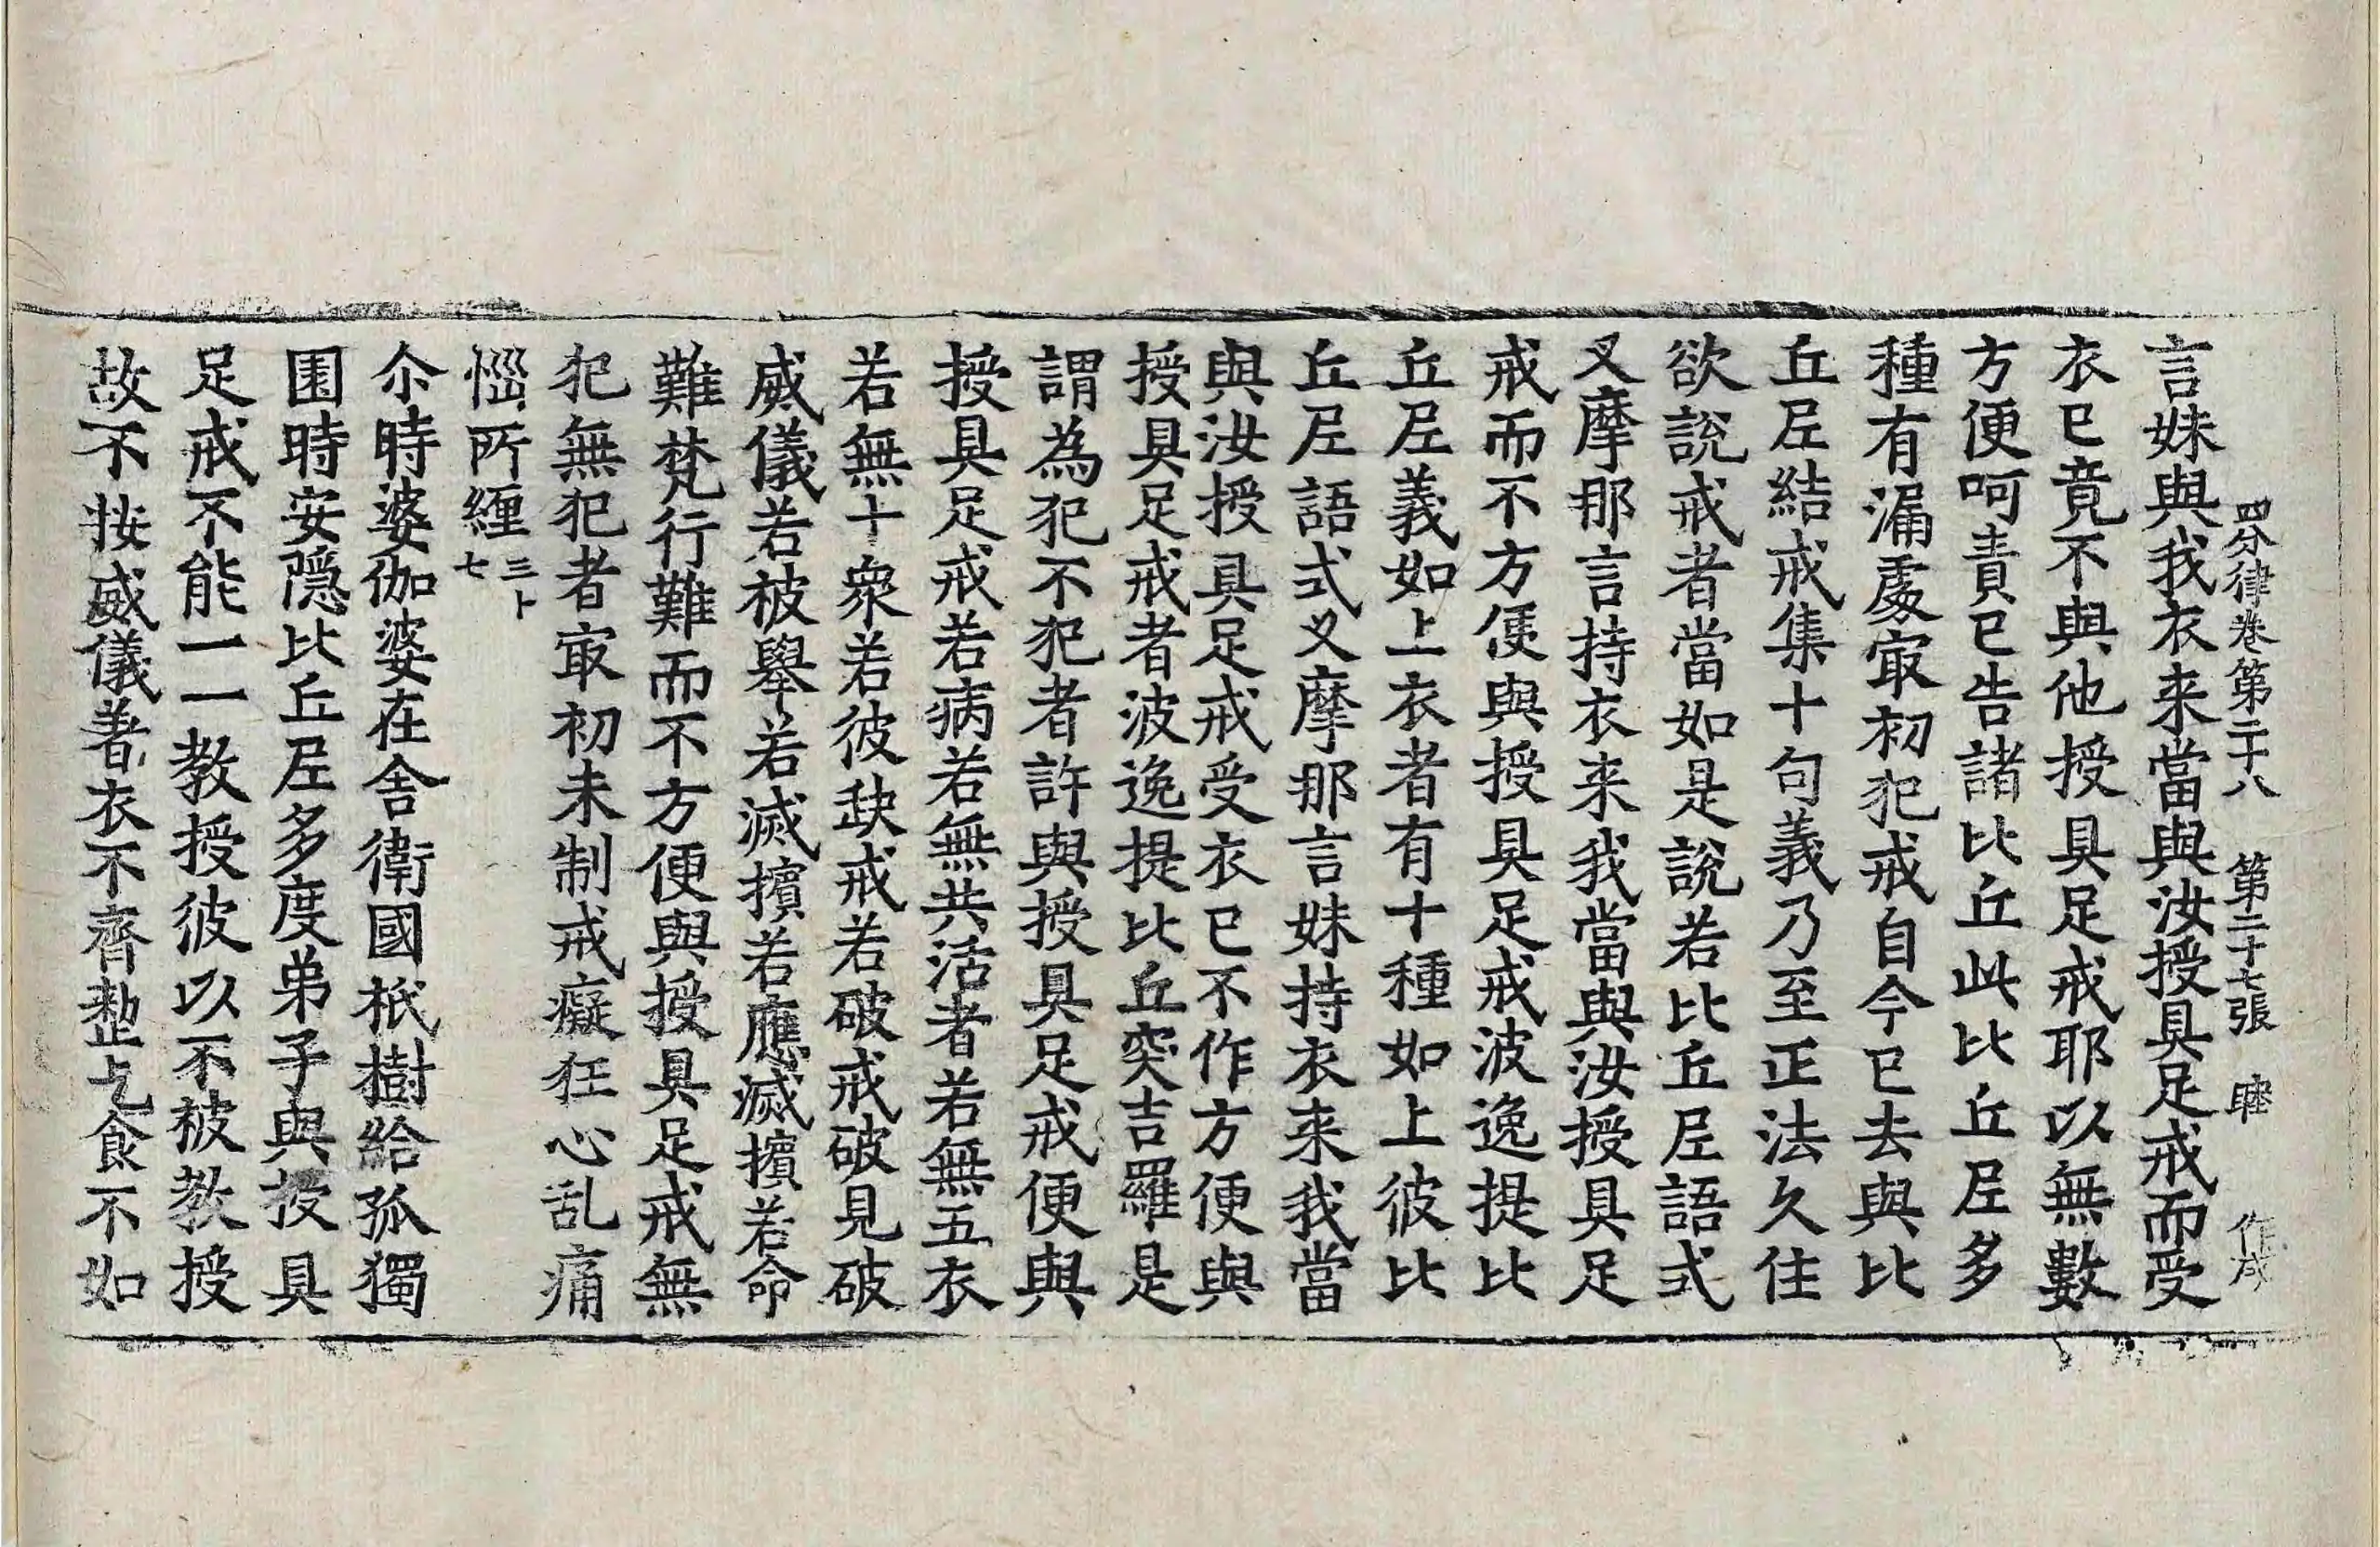 四分律卷第二十八 第二十七張 睦 作成
言妹與我衣来當與汝授具足戒而受
衣已竟不與他授具足戒耶以無數
方便呵責已告諸比丘此比丘尼多
種有漏處㝡初犯戒自今已去與比
丘尼結戒集十句義乃至正法久住
欲說戒者當如是說若比丘尼語式
叉摩那言持衣来我當與汝授具足
戒而不方便與授具足戒波逸提比
丘尼義如上衣者有十種如上彼比
丘尼語式叉摩那言妹持衣来我當
與汝授具足戒受衣已不作方便與
授具足戒者波逸提比丘突吉羅是
謂為犯不犯者許與授具足戒便與
授具足戒若病若無共活者若無五衣
若無十衆若彼缺戒若破戒破見破
威儀若被舉若滅擯若應滅擯若命
難梵行難而不方便與授具足戒無
犯無犯者㝡初未制戒癡狂心乱痛
惱所纏 三卜七
尒時婆伽婆在舍衛國祇樹給孤獨
園時安隱比丘尼多度弟子與授具
足戒不能一一教授彼以不被教授
故不按威儀著衣不齊整乞食不如